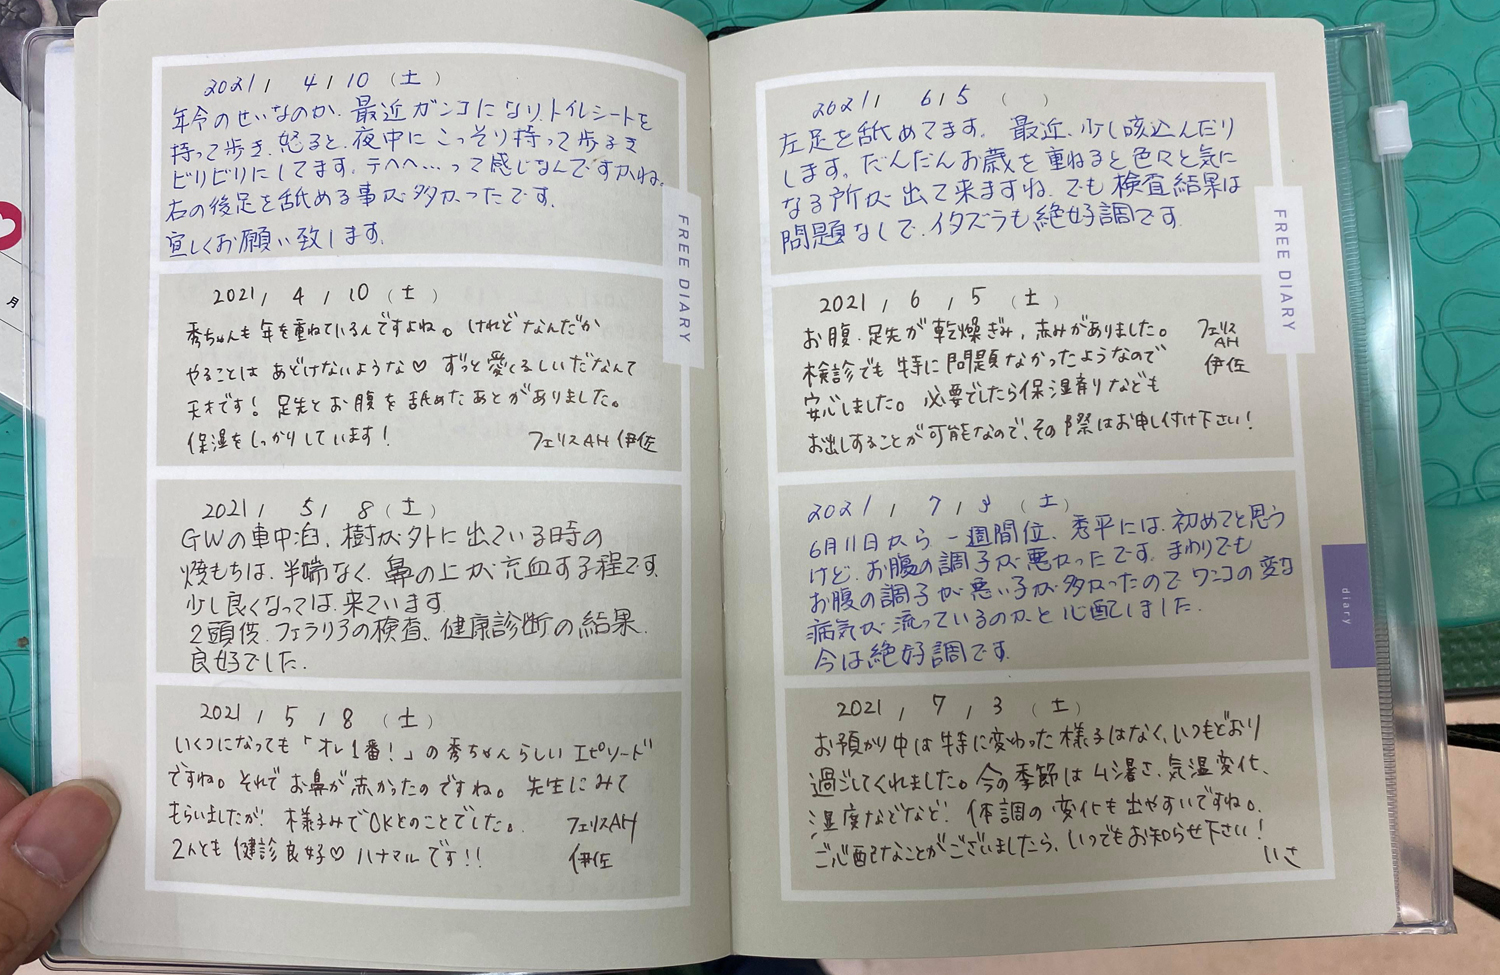 2021, 4/10 (土)
年令のせいなのか、最近ガンコになり、トイレシートを
持って歩き、怒ると、夜中にこっそり持って歩るき
ビリビリにしてます。テヘヘ…って感じなんですかね。
右の後足を舐める事が多かったです。
宜しくお願い致します。
FREE DIARY
2021, 4, 10 (土)
秀ちゃんも年を重ねているんですよね。けれどなんだか
やることはあどけないような♡ ずっと愛くるしいだなんて
天才です! 足先とお腹を舐めたあとがありました。
保湿をしっかりしています!
フェリスAH 伊佐
2021, 5, 8 (土)
GWの車中泊、樹が外に出ている時の
焼もちは、半端なく、鼻の上が充血する程です。
少し良くなっては、来ています。
2頭供、フェラリアの検査、健康診断の結果、
良好でした.
2021, 5, 8 (土)
いくつになっても「オレ1番!」の秀ちゃんらしいエピソード
ですね。それでお鼻が赤かったのですね。先生にみて
もらいましたが! 様子みでOKとのことでした。
フェリスAH
2人とも健診良好♡ ハナマルです!!
伊佐
月
2021, 6, 5 ( )
左足を舐めてます。最近、少し咳込んだり
します。だんだんお歳を重ねると色々と気に
なる所が出て来ますね、でも検査結果は
問題なしで、イタズラも絶好調です.
FREE DIARY
2021, 6, 5 (土)
お腹・足先が乾燥ぎみ, 赤みがありました。
検診でも特に問題なかったようなので
安心しました。必要でしたら保湿剤なども
お出しすることが可能なので、その際はお申し付け下さい!
フェリス
AH
伊佐
2021, 7, 3 (土)
6月11日から一週間位、秀平には、初めてと思う
けど、お腹の調子が悪かったです。まわりでも
お腹の調子が悪い子が多かったのでワンコの変な
病気が流っているのかと心配しました.
今は絶好調です.
diary
2021, 7, 3 (土)
お預かり中は特に変わった様子はなく、いつもどおり
過ごしてくれました。今の季節はムシ暑さ、気温変化、
湿度などなど! 体調の変化も出やすいですね。
ご心配なことがございましたら、いつでもお知らせ下さい!
いさ